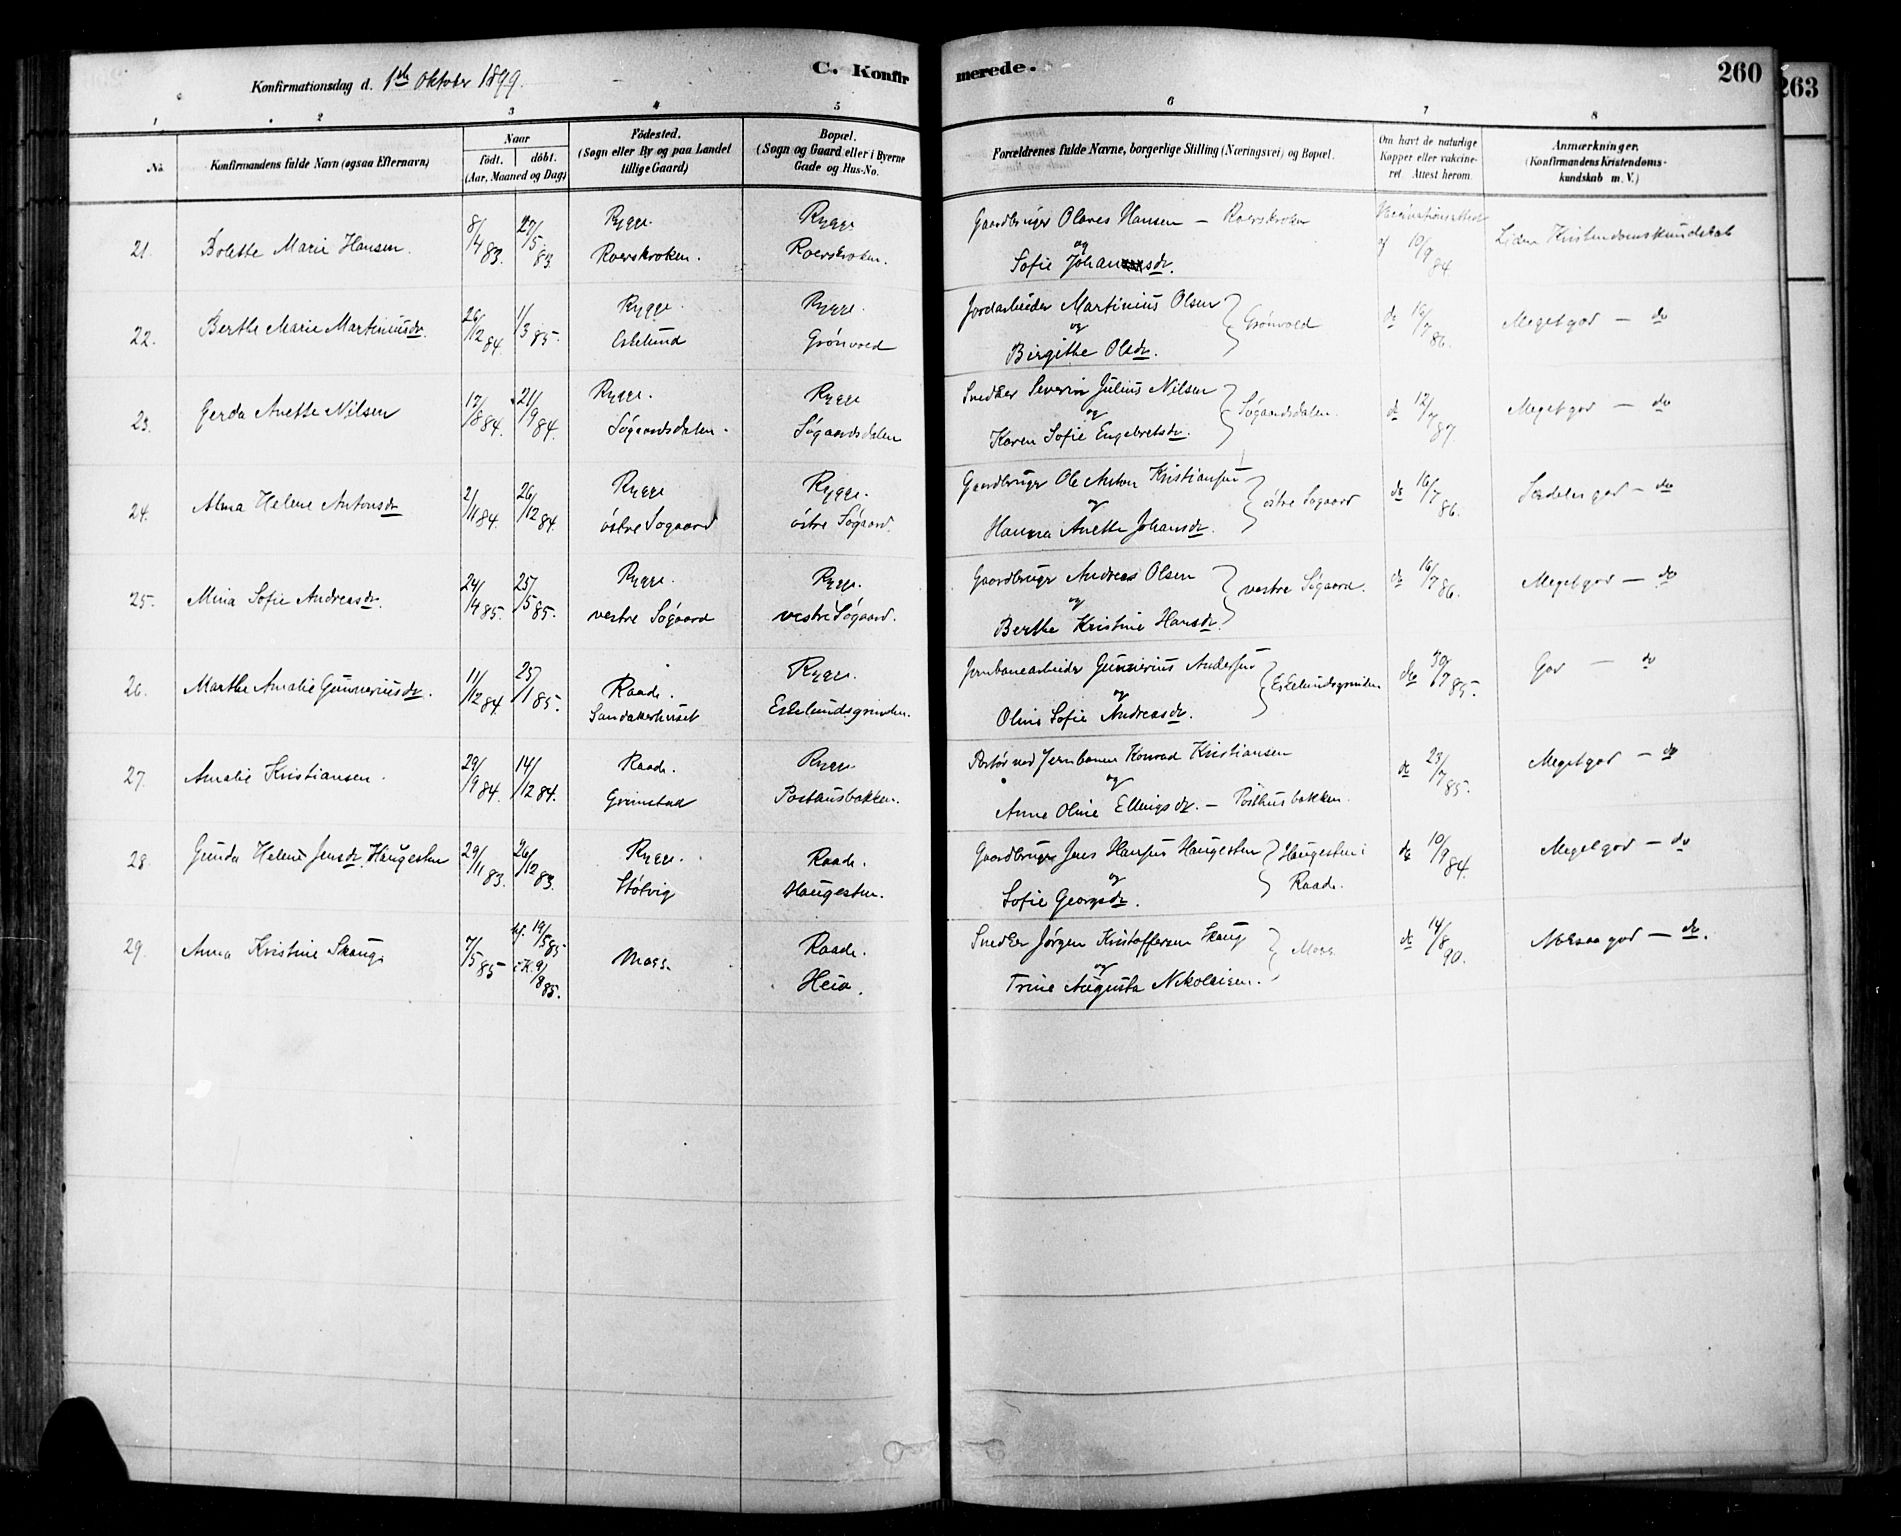 Konfirmationsdag d. 1ste Oktober 1899.
C. Konfir
merede.
260
263
1 2 3 4 5 6 7 8
No.
Konfirmandens fulde Navn (ogsaa Efternavn)
Naar
födt. döbt.
(Aar, Maaned og Dag)
Födested.
(Sogn eller By og paa Landet
tillige Gaard)
Bopæl.
(Sogn og Gaard eller i Byerne
Gade og Hus-No.
Forældrenes fulde Navne, borgerlige Stilling (Næringsvei) og Bopæl.
Om havt de naturlige
Kopper eller vakcine-
ret. Attest herom.
Anmærkninger.
(Konfirmandens Kristendoms-
kundskab m. V.)
21. Bolette Marie Hansen. 8/4 83. 27/5 83. Rygge. Rygge
Roerskroken. Roerskroken.
Gaardbruger Olaves Hansen — Roerskroken
og
Sofie Johansdr.
Vaccinationsattest
af 10/9 84
Liden Kristendomskundskab
22. Berthe Marie Martiniusdr. 26/12 84. 1/3 85. Rygge. Rygge.
Eskelund Grønvold
Jordarbeider Martinius Olsen
og
Birgithe Olsdr.
Grønvold
do 16/7 86.
Megetgod — do
23. Gerda Anette Nilsen 17/8 84. 21/9 84. Rygge. Rygge
Søgaardsdalen. Søgaardsdalen
Snedker Severin Julius Nilsen
og
Karen Sofie Engebretsdr.
Søgaardsdalen.
do 12/7 87
Megetgod — do
24. Alma Helene Antonsdr 2/11 84. 26/12 84. Rygge Rygge.
östre Søgaard östre Søgaard.
Gaardbruger Ole Anton Kristiansen
og
Hanna Anette Johansdr.
östre Søgaard
do 16/7 86.
Særdeles god — do
25. Mina Sofie Andreasdr. 24/4 85. 25/5 85. Rygge. Rygge.
vestre Søgaard vestre Søgaard.
Gaardbruger Andreas Olsen
og
Berthe Kristine Hansdr.
vestre Søgaard.
do 16/7 86.
Megetgod — do
26. Marthe Amalie Gunneriusdr. 11/12 84. 25/1 85. Raade. Rygge.
Sandakerhuset Eskelundsgrinden.
Jernbanearbeider Gunnerius Andersen
og
Oline Sofie Andreasdr.
Eskelundsgrinden
do 30/7 85.
God — do
27. Amalie Kristiansen. 29/9 84. 14/12 84. Raade. Rygge
Grimstad Posthusbakken.
Portør ved Jernbanen Konrad Kristiansen
og
Anne Oline Ellingsdr. — Posthusbakken.
do 23/7 85.
Megetgod — do
28. Gunda Helene Jensdr. Haugesten 29/11 83. 26/12 83. Rygge. Raade.
Støtvig Haugesten.
Gaardbruger Jens Hansen Haugesten
og
Sofie Georgsdr.
Haugesten i
Raade.
do 10/9 84.
Megetgod — do
29. Anna Kristine Skaug. 7/5 85 hf. 19/5 85
i K. 9/8 85. Moss. Raade.
Heia.
Snedker Jørgen Kristoffersen Skaug
og
Trine Augusta Nikolaisen.
Moss
do 14/8 90.
Noksaa god — do.